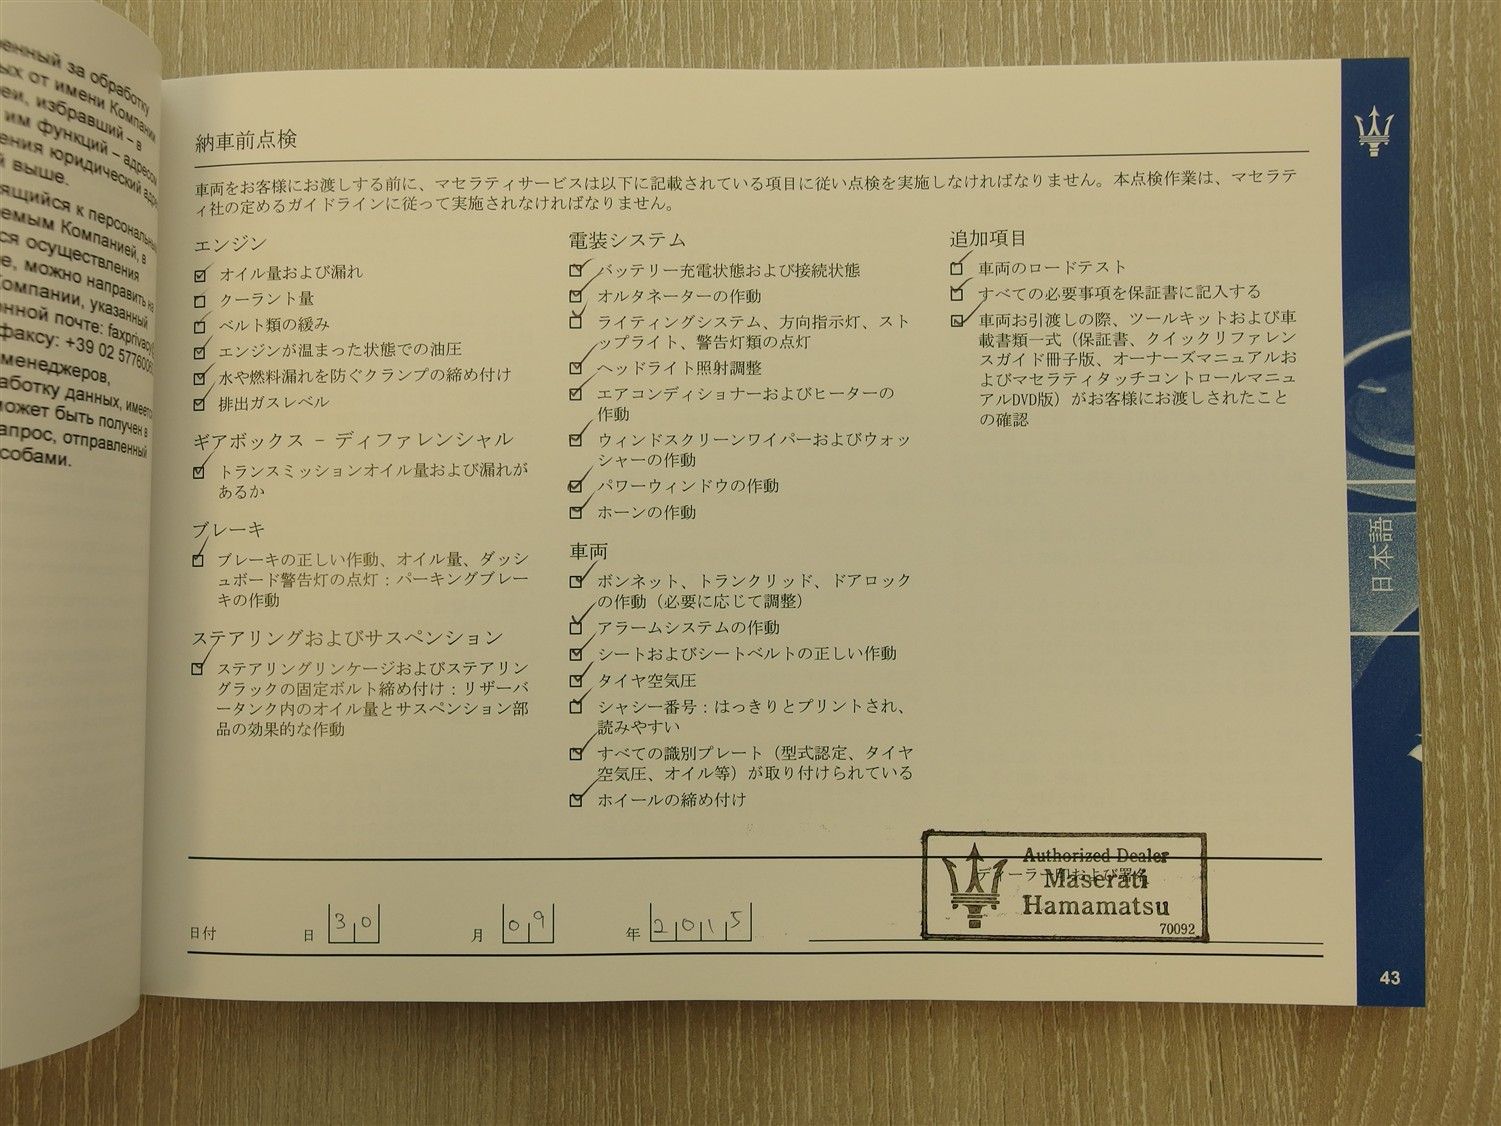 енный за обработку
ых от имени Компании
еи, избравший – в
им функций – адресом
ения юридический
й выше.
ящийся к
емым Компанией, в
ся осуществления
е, можно направить на
Компании, указанный
онной почте:
факсу: +39 02
менеджеров,
аботку данных,
может быть получен в
апрос, отправленный
собами.
納車前点検
車両をお客様にお渡しする前に、マセラティサービスは以下に記載されている項目に従い点検を実施しなければなりません。本点検作業は、マセラテ
ィ社の定めるガイドラインに従って実施されなければなりません。
エンジン
オイル量および漏れ
クーラント量
ベルト類の緩み
エンジンが温まった状態での油圧
水や燃料漏れを防ぐクランプの締め付け
排出ガスレベル
ギアボックス – ディファレンシャル
トランスミッションオイル量および漏れが
あるか
ブレーキ
ブレーキの正しい作動、オイル量、ダッシ
ュボード警告灯の点灯：パーキングブレー
キの作動
ステアリングおよびサスペンション
ステアリングリンケージおよびステアリン
グラックの固定ボルト締め付け：リザーバ
ータンク内のオイル量とサスペンション部
品の効果的な作動
電装システム
バッテリー充電状態および接続状態
オルタネーターの作動
ライティングシステム、方向指示灯、スト
ップライト、警告灯類の点灯
ヘッドライト照射調整
エアコンディショナーおよびヒーターの
作動
ウィンドスクリーンワイパーおよびウォッ
シャーの作動
パワーウィンドウの作動
ホーンの作動
車両
ボンネット、トランクリッド、ドアロック
の作動（必要に応じて調整）
アラームシステムの作動
シートおよびシートベルトの正しい作動
タイヤ空気圧
シャシー番号：はっきりとプリントされ、
読みやすい
すべての識別プレート（型式認定、タイヤ
空気圧、オイル等）が取り付けられている
ホイールの締め付け
追加項目
車両のロードテスト
すべての必要事項を保証書に記入する
車両お引渡しの際、ツールキットおよび車
載書類一式（保証書、クイックリファレン
スガイド冊子版、オーナーズマニュアルお
よびマセラティタッチコントロールマニュ
アルDVD版）がお客様にお渡しされたこと
の確認
日本語
Authorized Dealer
ディーラー印および署名
Maserati
Hamamatsu
70092
日付 日 30 月 09 年 2015
43